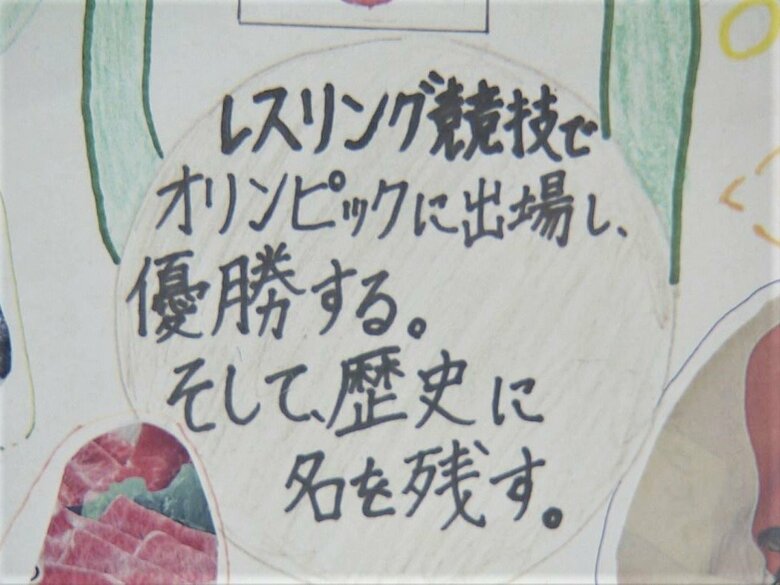 レスリング競技で
オリンピックに出場し、
優勝する。
そして、歴史に
名を残す。